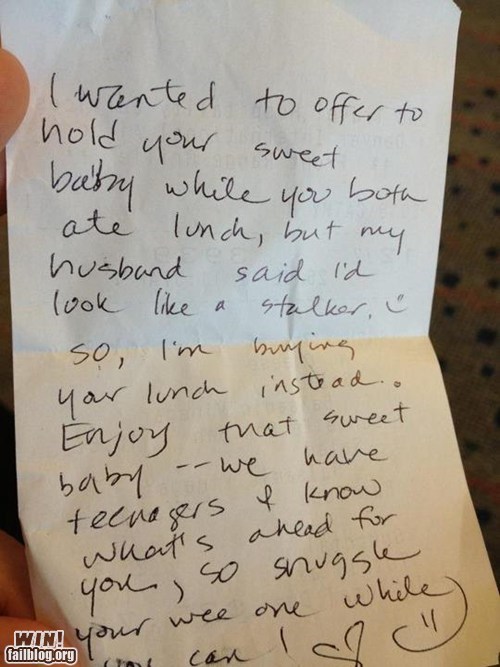 I wanted to offer to
hold your sweet
baby while you both
ate lunch, but my
husband said I'd
look like a stalker. :)
so, I'm buying
your lunch instead.
Enjoy that sweet
baby -- we have
teenagers & know
what's ahead for
you, so snuggle
your wee one while
you can! <3 :)
WIN!
failblog.org